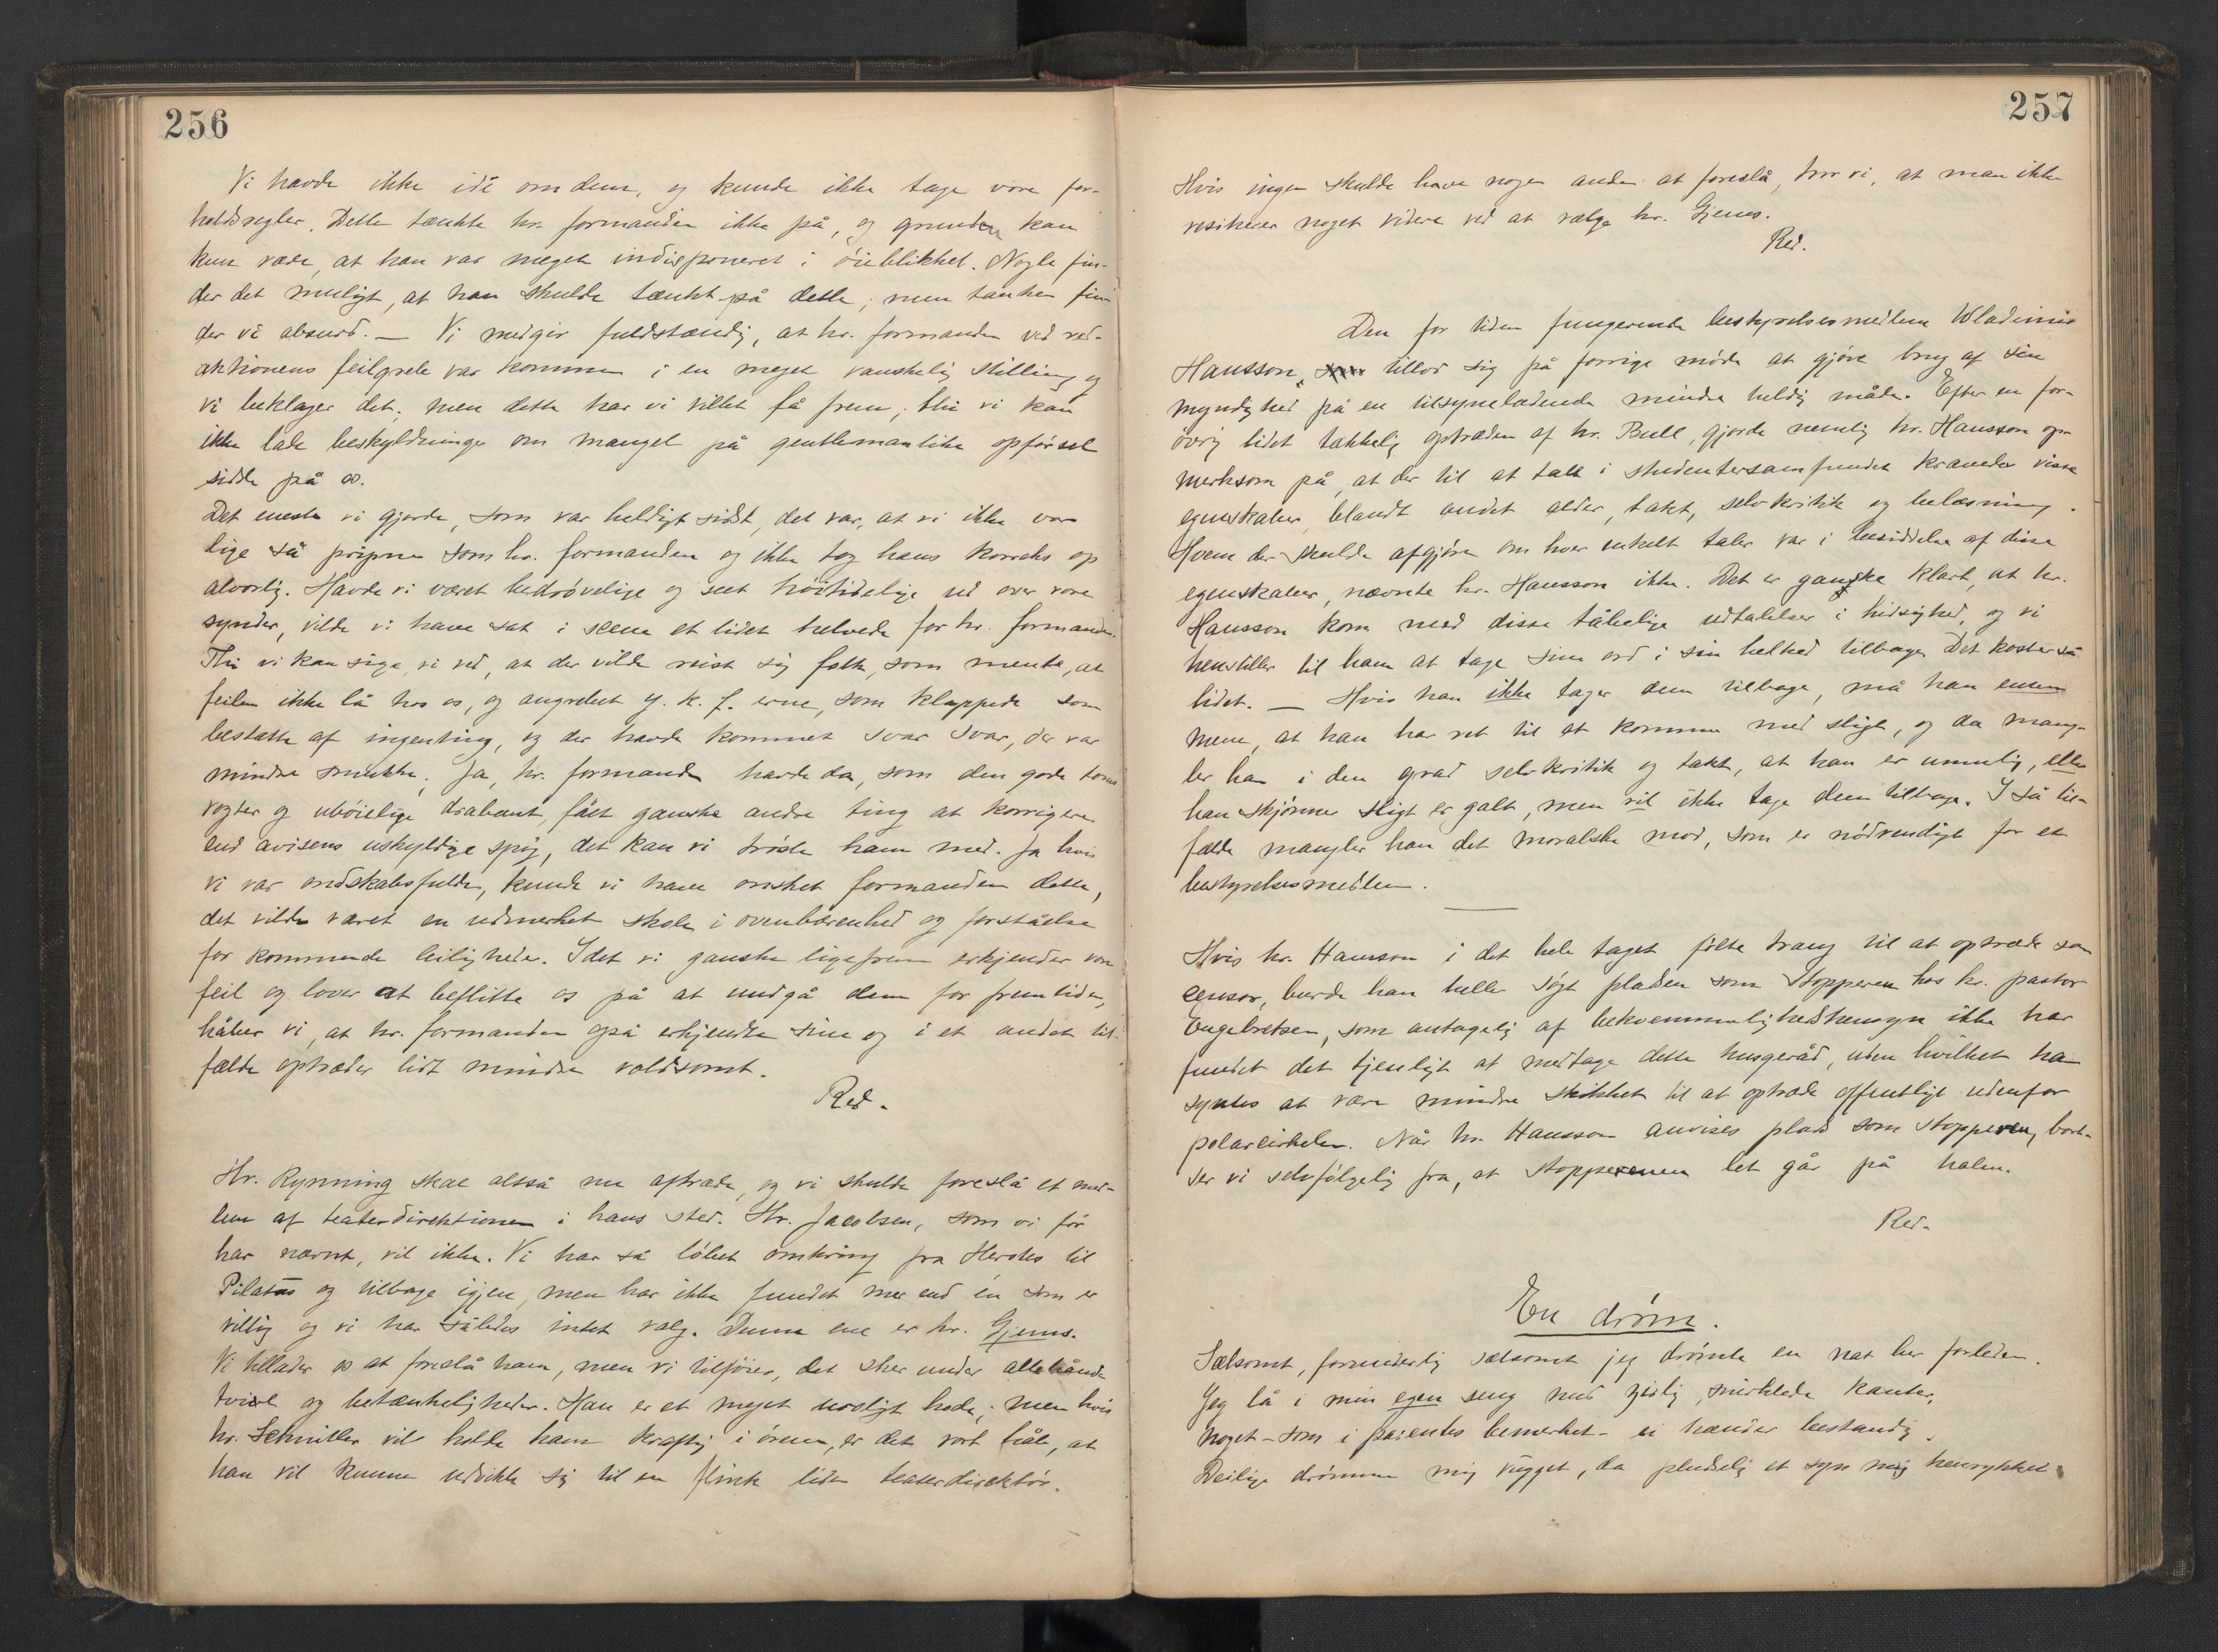 256
Vi havde ikke idé om dem, og kunde ikke tage vore for-
holdsregler. Dette tænkte hr. formanden ikke på, og grunden kan
kun være, at han var meget indisponeret i øieblikket. Nogle fin-
der det muligt, at han skulde tænkt på dette; men tanken fin-
der vi absurd. — Vi medgir fuldstændig, at hr. formanden ved red-
aktionens feilgreb var kommen i en meget vanskelig stilling og
vi beklager det; men dette har vi villet få frem; thi vi kan
ikke lade beskyldninger om mangel på gentlemanlike opførsel
sidde på os.
Det eneste vi gjorde, som var heldigt sidst, det var, at vi ikke var
lige så pripne som hr. formanden og ikke tog hans korreks op
alvorlig. Havde vi været bedrøvelige og seet høitidelige ud over vore
synder, vilde vi have sat i scene et lidet helvede for hr. formanden.
Thi vi kan sige, vi ved, at der vilde reist sig folk, som mente, at
feilen ikke lå hos os, og angrebet y. k. f. erne, som klappede som
besatte af ingenting, og der havde kommet svar svar, der var
mindre smukke. Ja, hr. formanden havde da, som den gode tones
vogter og ubøielige drabant, fået ganske andre ting at korrigere
end avisens uskyldige spøg, det kan vi trøste ham med. Ja hvis
vi var ondskabsfulde, kunde vi have ønsket formanden dette,
det vilde været en udmerket skole i overbærenhed og forståelse
for kommende leiligheder. Idet vi ganske ligefrem erkjender vore
feil og lover at beflitte os på at undgå dem for fremtiden,
håber vi, at hr. formanden også erkjender sine og i et andet til-
fælde optræder lidt mindre voldsomt.
Red.
Hr. Rynning skal altså nu aftræde, og vi skulde foreslå et med-
lem af teaterdirektionen i hans sted. Hr. Jacobsen, som vi før
har nævnt, vil ikke. Vi har så løbet omkring fra Herodes til
Pilatus og tilbage igjen, men har ikke fundet mer end én som er
villig og vi har således intet valg. Denne ene er hr. Gjems.
Vi tillader os at foreslå ham, men vi tilføier, det sker under allehånde
tvivl og betænkeligheder. Han er et meget uroligt hode; men hvis
hr. Schmidler vil holde ham kraftig i ørene, er det vort håb, at
han vil kunne udvikle sig til en flink liden teaterdirektør.
257
Hvis ingen skulde have nogen anden at foreslå, tror vi, at man ikke
resikerer noget videre ved at vælge hr. Gjems.
Red.
Den for tiden fungerende bestyrelsesmedlem Wladimir
Hansson, tillod sig på forrige møde at gjøre brug af sin
myndighed på en tilsyneladende mindre heldig måde. Efter en for-
øvrig lidet takkelig optræden af hr. Bull, gjorde nemlig hr. Hansson op-
merksom på, at der til at tale i studentersamfundet krævedes visse
egenskaber, blandt andet alder, takt, selvkritik og belæsning.
Hvem der skulde afgjøre om hver enkelt taler var i besiddelse af disse
egenskaber, nævnte hr. Hansson ikke. Det er ganske klart, at hr.
Hansson kom med disse tåbelige udtalelser i hidsighed, og vi
henstiller til ham at tage sine ord i sin helhed tilbage. Det koster så
lidet. — Hvis han ikke tager dem tilbage, må han enten
mene, at han har ret til at komme med sligt, og da mang-
ler han i den grad selvkritik og takt, at han er umulig, eller
han skjønner sligt er galt, men vil ikke tage dem tilbage. I så til-
fælde mangler han det moralske mod, som er nødvendigt for et
bestyrelsesmedlem.
Hvis hr. Hansson i det hele taget følte trang til at optræde som
censor, burde han heller søgt pladsen som Stopperen hos hr. pastor
Engebretsen, som antagelig af bekvemmelighedhensyn ikke har
fundet det tjenligt at medtage dette husgeråd, uden hvilket han
syntes at være mindre skikket til at optræde offentligt udenfor
polarcirkelen. Når hr. Hansson anvises plads som stopperen, bort-
ser vi selvfølgelig fra, at stopperenen let går på halen.
Red.
En drøm.
Sælsomt, forunderlig sælsomt jeg drømte en nat her forleden.
Jeg lå i min egen seng med zirlig snirklede kanter,
noget - som i parentes bemerket - ei hænder bestandig.
Deilige drømme mig vugget, da pludselig et syn mig henrykket